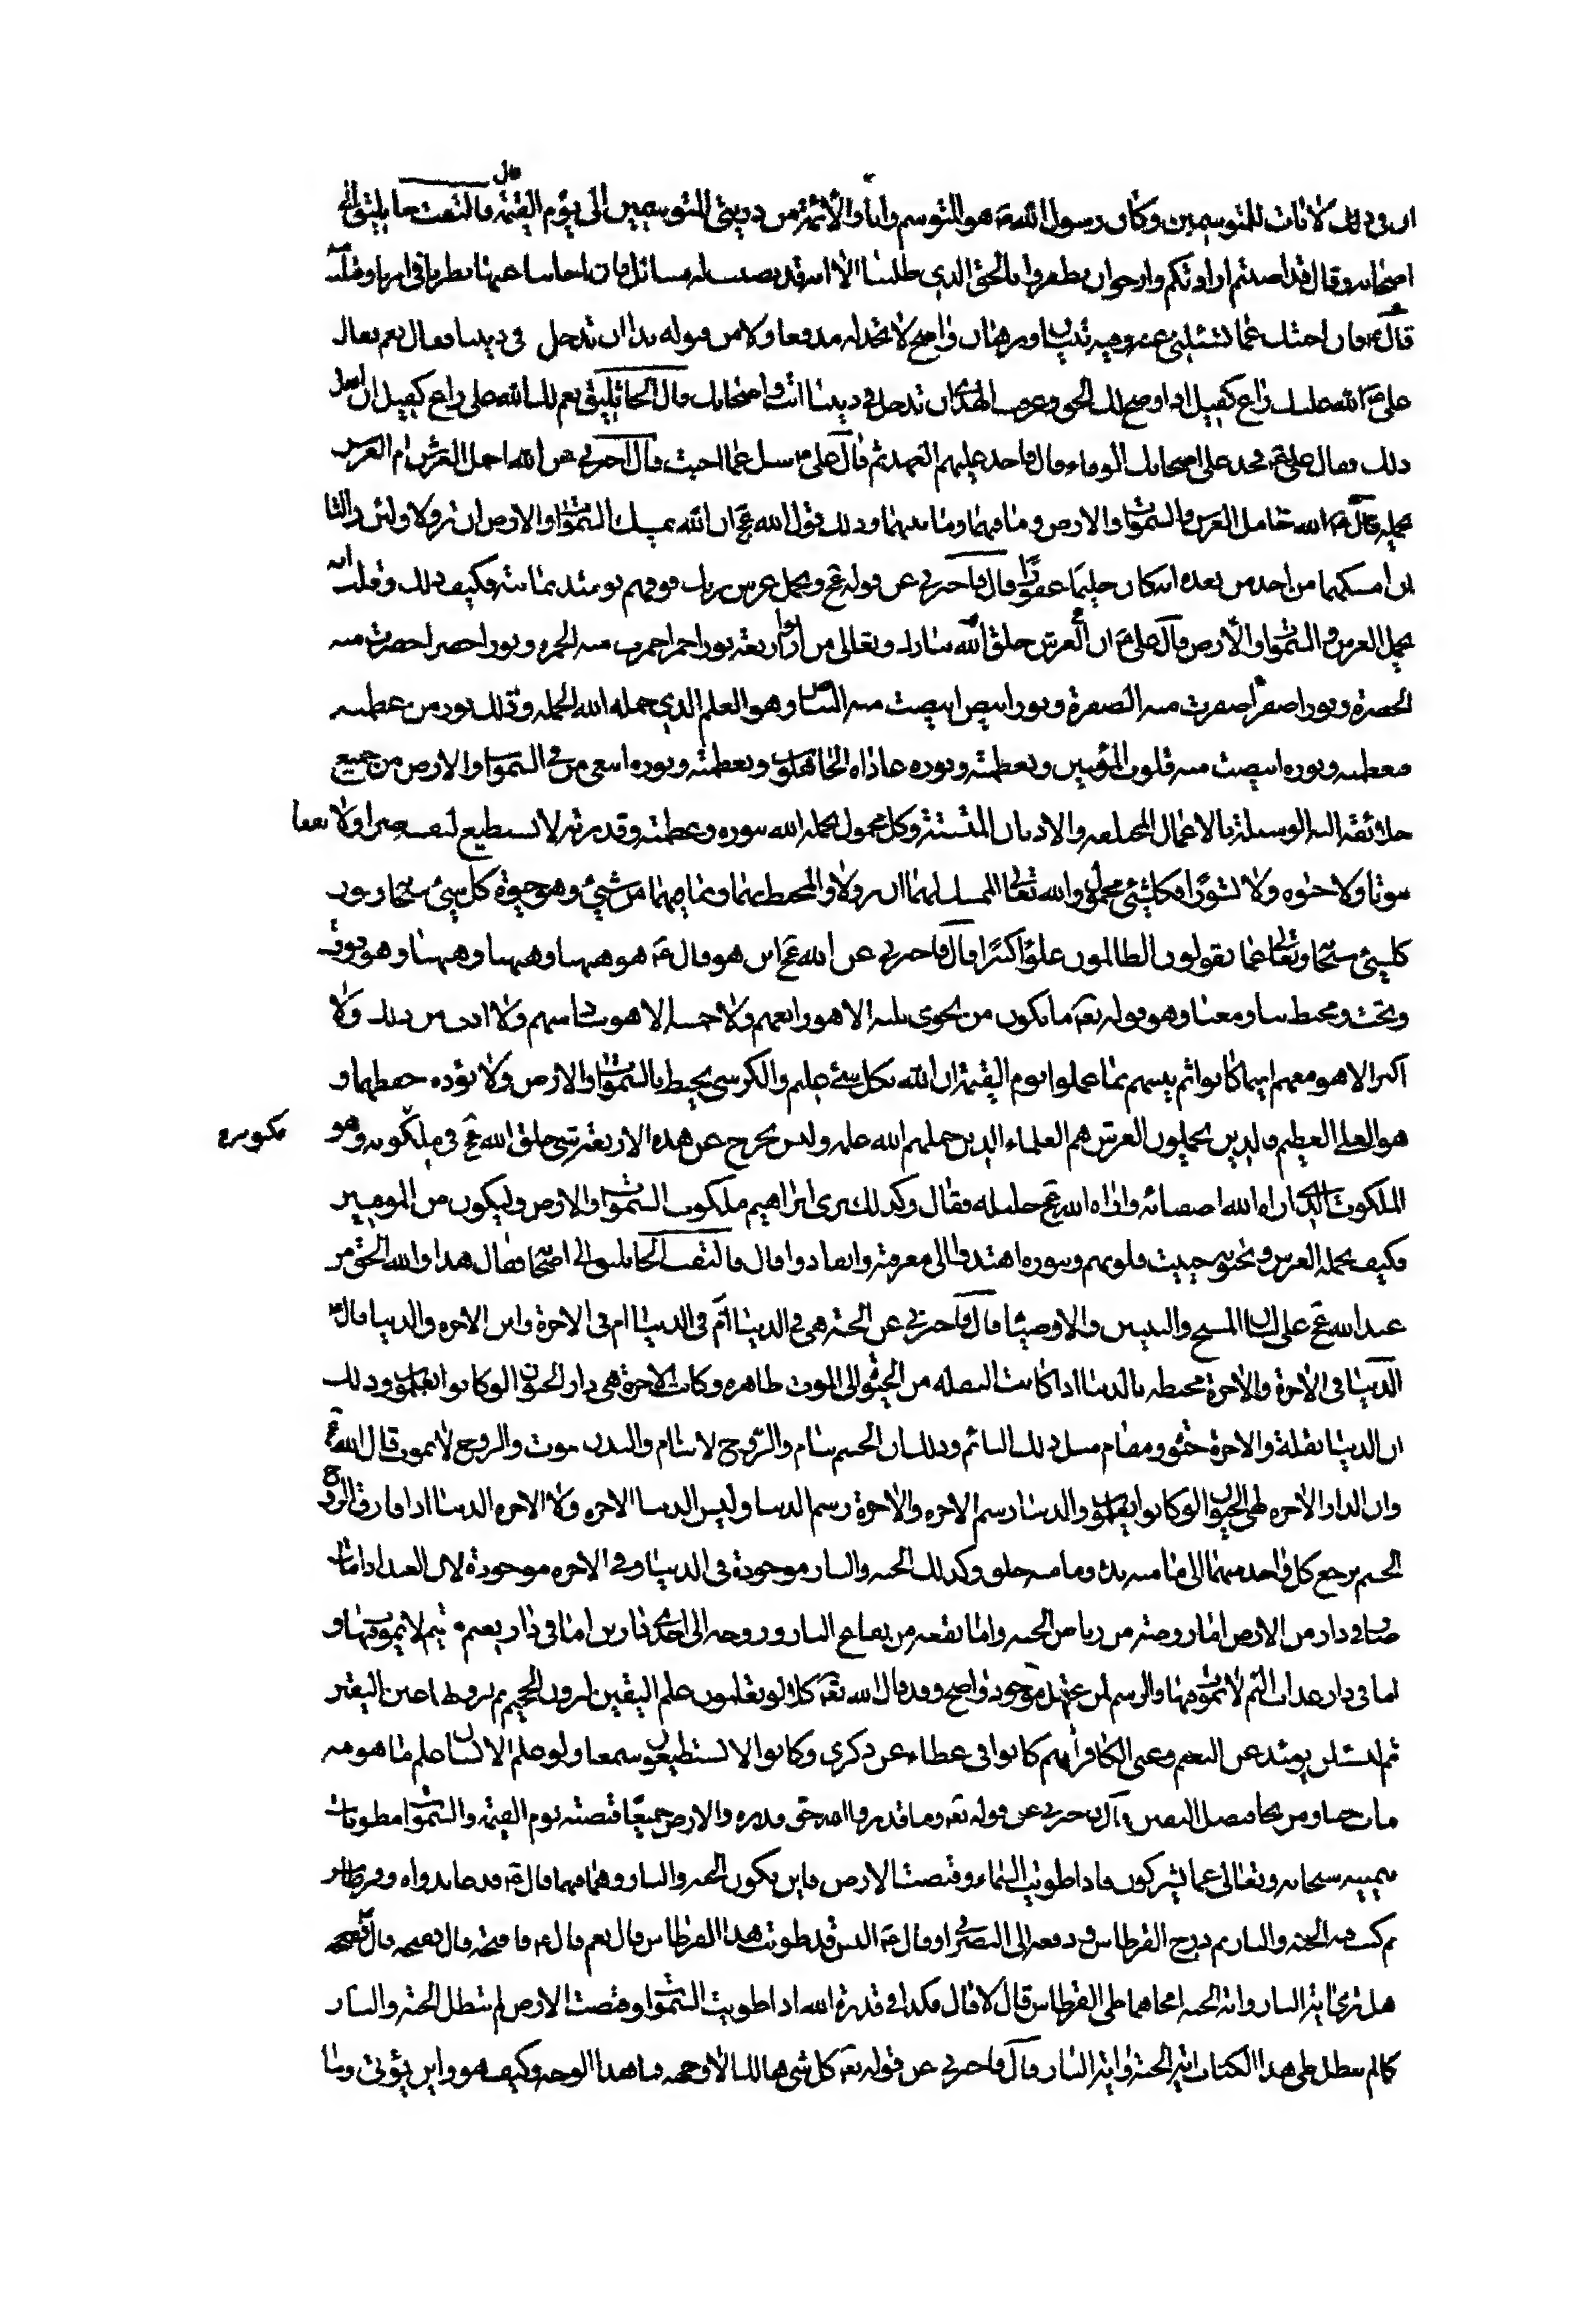 ان في ذلك لآيات للمتوسمين وكان رسول الله ص هو المتوسم وانا والأئمة من ذريتي المتوسمين الى يوم القيمة قال فالتفت جاثليق الى
اصحابه وقال قد اصبتم ارادتكم وارجو ان تظفروا بالحق الذي طلبنا الا انه قد نصبت له مسائل فان اجابنا عنها نظرنا في امرنا وقبلت منه
قال ع فان اجبتك عما تسئلني عنه وفيه تبيان وبرهان واضح لا تجد له مدفعا ولا من قبوله بدا ان تدخل في ديننا فقال نعم فقال
علي ع الله عليك راع كفيل اذا وضح لك الحق وعرفت الهدى ان تدخل في ديننا انت واصحابك قال الجاثليق نعم لك الله علي راع كفيل ان افعل
ذلك فقال علي ع فخذ على اصحابك الوفاء قال فاخذ عليهم العهد ثم قال علي ع سل عما احببت قال اخبرني عن الله احمل العرش ام العرش
يحمله قال ع الله حامل العرش والسموات والارض وما فيهما وما بينهما وذلك قول الله عج ان الله يمسك السموات والارض ان تزولا ولئن زالتا
ان امسكهما من احد من بعده انه كان حليما غفورا قال فاخبرني عن قوله عج ويحمل عرش ربك فوقهم يومئذ ثمانية فكيف ذلك وقلت انه
يحمل العرش والسموات والأرض قال علي ع ان العرش خلقه الله تبارك وتعالى من انوار اربعة نور احمر احمرت منه الحمرة ونور اخضر اخضرت منه
الخضرة ونور اصفر اصفرت منه الصفرة ونور ابيض ابيضت منه البياض وهو العلم الذي حمله الله الحملة وذلك نور من عظمته
فبعظمته ونوره ابيضت منه قلوب المؤمنين وبعظمته ونوره عاداه الجاهلون وبعظمته ونوره ابتغى من في السموات والارض من جميع
خلائقه اليه الوسيلة بالاعمال المختلفه والاديان المتشتتة وكل محمول يحمله الله بنوره وعظمته وقدرته لا يستطيع لنفسه ضرا ولا نفعا
موتا ولا حيوه ولا نشورا فكل شئ محمول والله تعالى الممسك لهما ان تزولا والمحيط بهما وبما فيهما من شئ وهو حيوة كل شئ سبحانه ونور
كل شئ سبحانه وتعالى عما يقولون الظالمون علوا كبيرا قال فاخبرني عن الله عج اين هو قال ع هو هيهنا وهيهنا وهيهنا وهو فوق
وتحت ومحيط بنا ومعنا وهو قوله تعه ما يكون من نجوى ثلثه الا هو رابعهم ولا خمسه الا هو سادسهم ولا ادنى من ذلك ولا
اكثر الا هو معهم اينما كانوا ثم ينبئهم بما عملوا يوم القيمة ان الله بكل شئ عليم والكرسي يحيط بالسموات والارض ولا يؤده حفظهما و
هو العلي العظيم فالذين يحملون العرش هم العلماء الذين حملهم الله علمه وليس يخرج عن هذه الاربعة شئ خلق الله عج في ملكوته وهو
الملكوت الذي اراه الله اصفيائه واراه الله عج خليله فقال وكذلك نري ابراهيم ملكوت السموات والارض وليكون من الموقنين
فكيف يحمله العرش وبحيوته حييت قلوبهم وبنوره اهتدوا الى معرفته وانقادوا قال فالتفت الجاثليق الى اصحابه فقال هذا والله الحق من
عند الله عج على لسان المسيح والنبيين والاوصياء قال فاخبرني عن الجنة هي في الدينا ام في الدينا ام في الاخرة واين الاخره والدنيا قال ع
الدنيا في الاخرة والاخرة محيطه بالدنيا اذا كانت النقله من الحيوة الى الموت ظاهره وكانت الاخرة هي دار الحيوان لو كانوا يعلمون وذلك
ان الدنيا نقلة والاخرة حيوة ومقام مثل ذلك النائم وذلك ان الجسم ينام والروح لا ينام والبدن يموت والروح لا يموت قال الله عج
وان الدار الاخره لهي الحيوان لو كانوا يعلمون والدنيا رسم الاخره والاخرة رسم الدنيا وليس الدنيا الاخره ولا الاخره الدنيا اذا فارق الروح
الجسم يرجع كل واحد منهما الى ما منه بدء وما منه خلق وكذلك الجنه والنار موجودة في الدنيا وفي الاخره موجودة لان العبد اذا مات
صار في دار من الارض اما روضة من رياض الجنه واما بقعه من بقاع النار وروحه الى احدى دارين اما في دار نعيم مقيم لا يموت فيها و
اما في دار عذاب اليم لا يموت فيها والرسم لمن عقل موجود واضح وقد قال الله تعه كلا لو تعلمون علم اليقين لترون الجحيم ثم لترونها عين اليقين
ثم لتسئلن يومئذ عن النعيم وعن الكافر انهم كانوا في غطاء عن ذكري وكانوا لا يستطيعون سمعا ولو علم الانسان علم ما هو فيه
مات حبا ومن نجا فبفضل اليقين قال فاخبرني عن قوله تعه وما قدروا الله حق قدره والارض جميعا قبضته يوم القيمة والسموات مطويات
بيمينه سبحانه وتعالى عما يشركون فاذا طويت السماء وقبضت الارض فاين يكون الجنه والنار وهما فيهما قال ع فدعا بدواه وقرطاس
ثم كتب فيه الجنه والنار ثم درج القرطاس ودفعه الى النصراني وقال ع اليس قد طويت هذا القرطاس قال نعم قال ع فافتحه قال ففتحه قال
هل ترى اية النار واية الجنه امحاهما طي القرطاس قال لا قال فهكذا في قدرة الله اذا طويت السموات وقبضت الارض لم تبطل الجنة والنار
كما لم تبطل طي هذا الكتاب اية الجنة واية النار قال فاخبرني عن قوله تعه كل شئ هالك الا وجهه فما هذا الوجه وكيف هو واين يؤتى وما